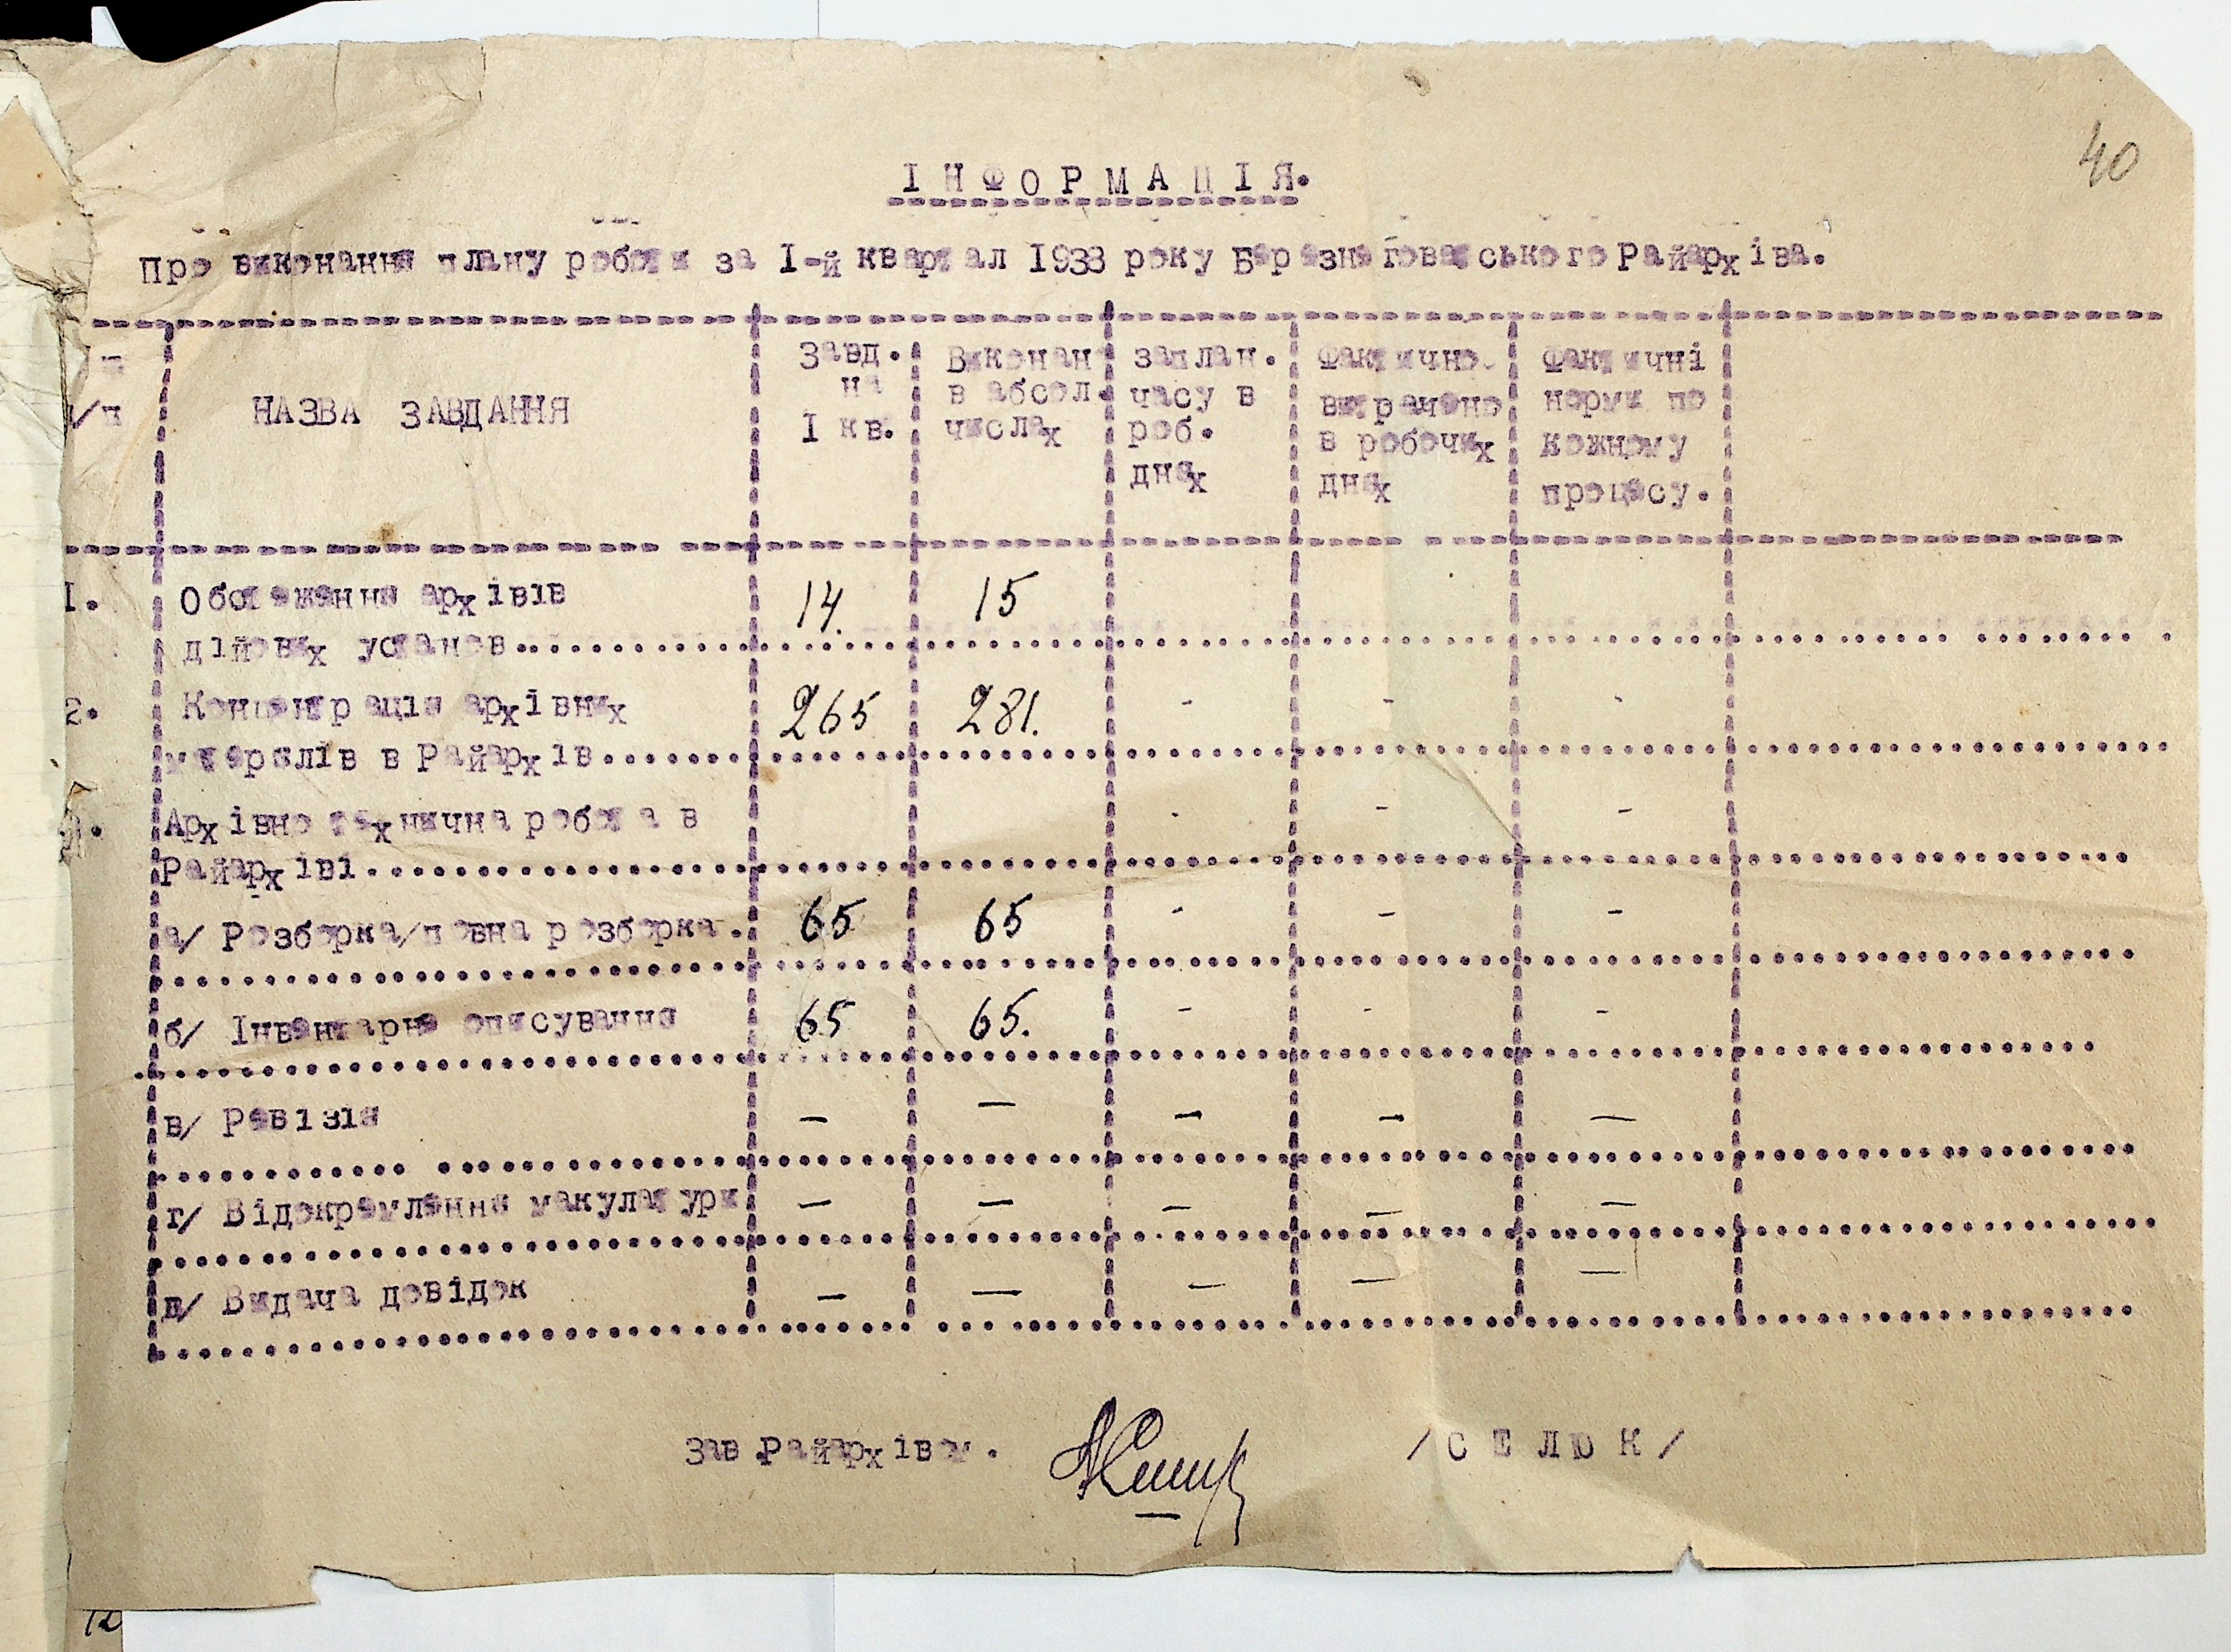 40
ІНФОРМАЦІЯ.
Про виконання плану роботи за І-й квартал 1938 року Березнеговатського Райархіва.
п/п НАЗВА ЗАВДАННЯ
Завд. на І кв.
Виконан в абсол. числах
заплан. часу в роб. днях
Фактично витрачено в робочих днях
Фактичні норми по кожному процесу.
І. Обстеження архівів
дійових установ 14. 15
2. Концентрація архівних
матерялів в Райархів 265 281. - - -
Архівно технична робота в
Райархіві - - -
а/ Розборка/повна розборка. 65 65 - - -
б/ Інвентарне описування 65 65. - - -
в/ Ревізія — — — — —
г/ Відокремлення макулатури — — — — —
д/ Видача довідок — — — — —
Зав.Райархівом. /СЕЛЮК/
12